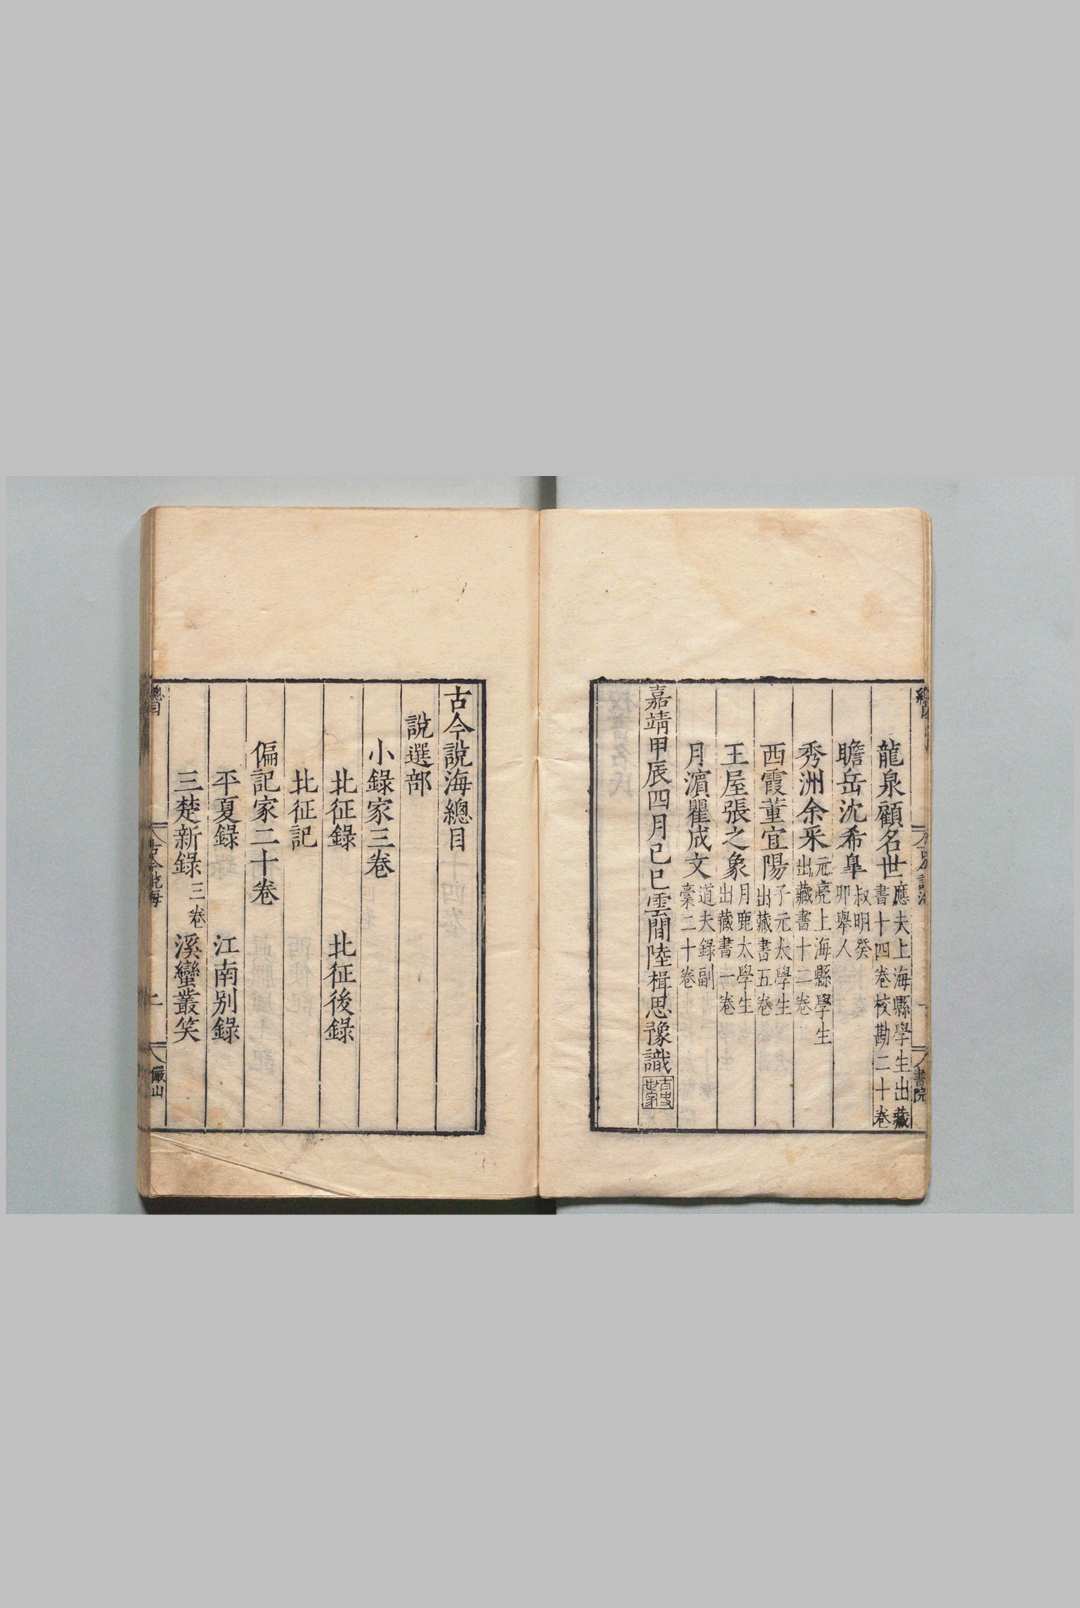 龍泉顧名世應夫上海縣學生出藏書十四卷校勘二十卷
瞻岳沈希皐叔明癸卯舉人
秀洲余采元亮上海縣學生出藏書十二卷
西霞董宜陽子元太學生出藏書五卷
王屋張之象月鹿太學生出藏書一卷
月濱瞿成文道夫錄副藁二十卷
嘉靖甲辰四月己巳雲間陸楫思豫識
書院
古今說海總目
說選部
小錄家三卷
北征錄 北征後錄
北征記
偏記家二十卷
平夏錄 江南别錄
三楚新錄三卷 溪蠻叢笑
總目 古今說海 二 儼山